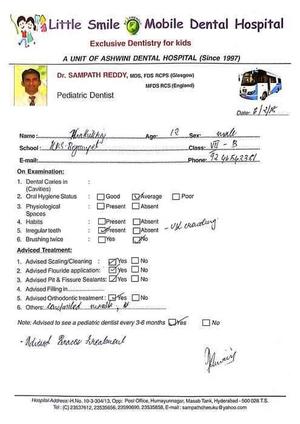 Little Smile Mobile Dental Hospital
Exclusive Dentistry for kids
A UNIT OF ASHWINI DENTAL HOSPITAL (Since 1997)
Dr. SAMPATH REDDY, MDS, FDS RCPS (Glasgow)
MFDS RCS (England)
Pediatric Dentist
Date:
Name: Age: 12 Sex: male
School: HPS-Begumpet Class: VII - B
E-mail: Phone:
On Examination:
1. Dental Caries in : (Cavities)
2. Oral Hygiene Status : Good Average Poor
3. Physiological Spaces : Present Absent
4. Habits : Present Absent
5. Irregular teeth : Present Absent - crowding
6. Brushing twice : Yes No
Adviced Treatment:
1. Advised Scaling/Cleaning : Yes No
2. Advised Flouride application : Yes No
3. Advised Pit & Fissure Sealants : Yes No
4. Advised Filling in
5. Advised Orthodontic treatment : Yes No
6. Others:
Note: Advised to see a pediatric dentist every 3-6 months Yes No
- Advised Braces treatment
Hospital Address: H.No. 10-3-304/13, Opp: Post Office, Humayunnagar, Masab Tank, Hyderabad - 500 028 T.S.
Tel: (C) 23537612, 23535656, 23590690, 23535858, E-mail : sampathcheeuku@yahoo.com